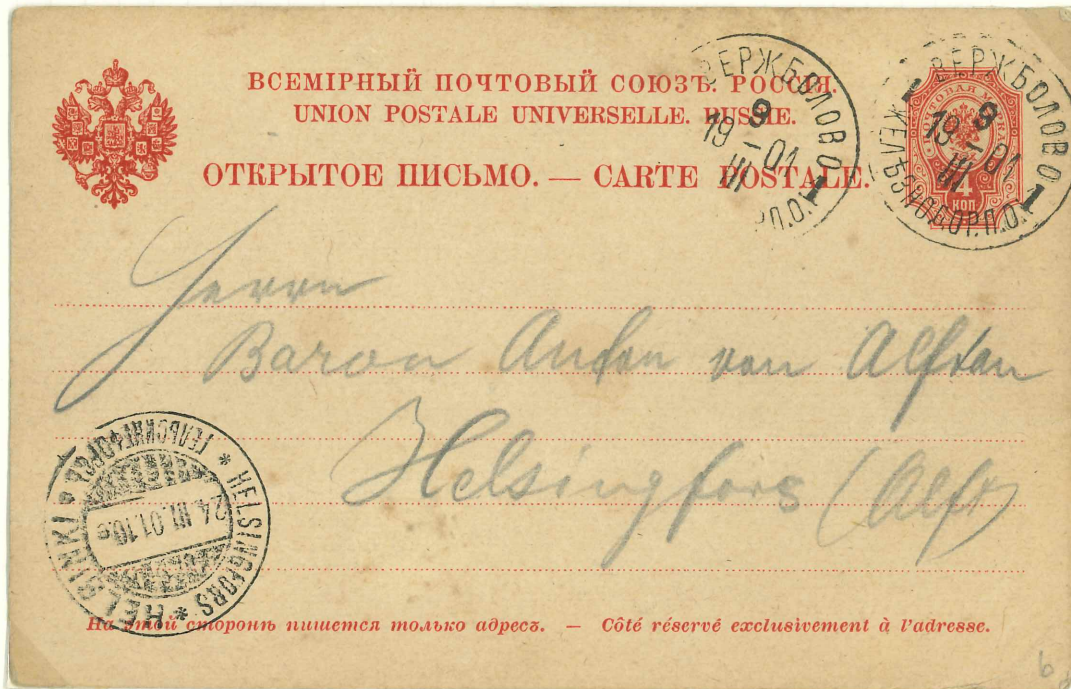 ВСЕМІРНЫЙ ПОЧТОВЫЙ СОЮЗЪ. РОССІЯ.
UNION POSTALE UNIVERSELLE. RUSSIE.
ОТКРЫТОЕ ПИСЬМО. — CARTE POSTALE.
ВЕРЖБОЛОВО
9
19 – 01
III
П.О. 1
ВЕРЖБОЛОВО
1 9
19 – 01
III
1
П.О.
4
КОП
Herrn
Baron Anton von Alftan
Helsingfors (Alft)
HELSINGFORS * HELSINKI * ГЕЛЬСИНГФОРСЪ *
24.III.01.10e
На этой сторонѣ пишется только адресъ. — Côté réservé exclusivement à l'adresse.
6